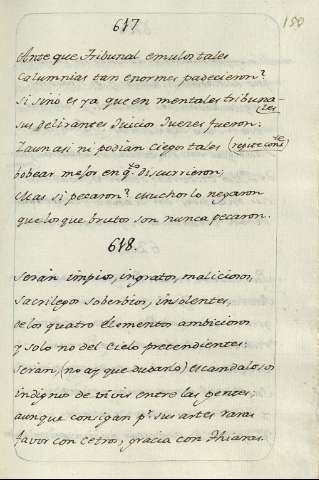 617
150
Ante que Tribunal emulos tales
Columnias tan enormes padecieron?
Si sinò es ya que en mentales tribuna-
les
sus delirantes Juicios Juezes fueron:
Zaun asi ni podian ciegos tales
bobear mejor en q.to discurrieron;
Mas si pecaron? Muchos lo negaron
que los que brutos son nunca pecaron.
618.
Seràn impios, ingratos, maliciosos,
sacrilegos soberbios, insolentes,
de los quatro Elementos ambiciosos
y solo no del Cielo pretendientes:
Seràn, (no ay que dudarlo) escandalosos
indignos de vivir entre las gentes,
aunque consigan p.r sus artes raras
favor con cetros, gracia con Thiaras.